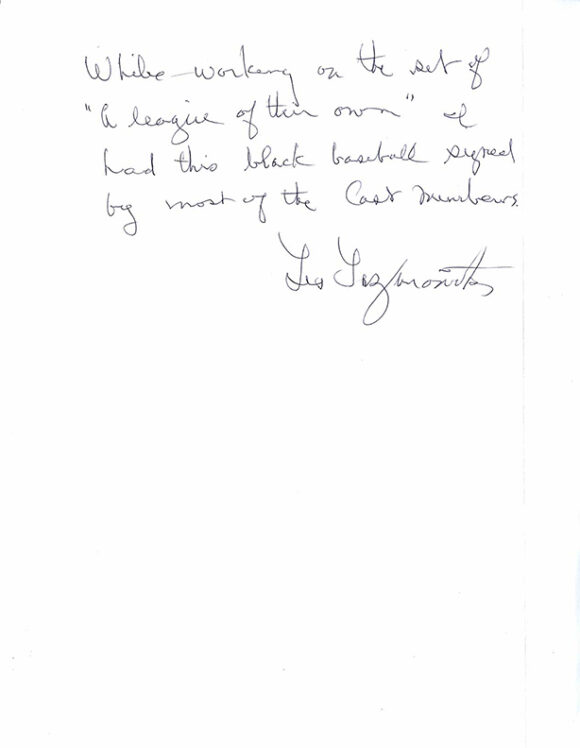 While working on the set of
"A league of their own" I
had this black baseball signed
by most of the Cast Members.